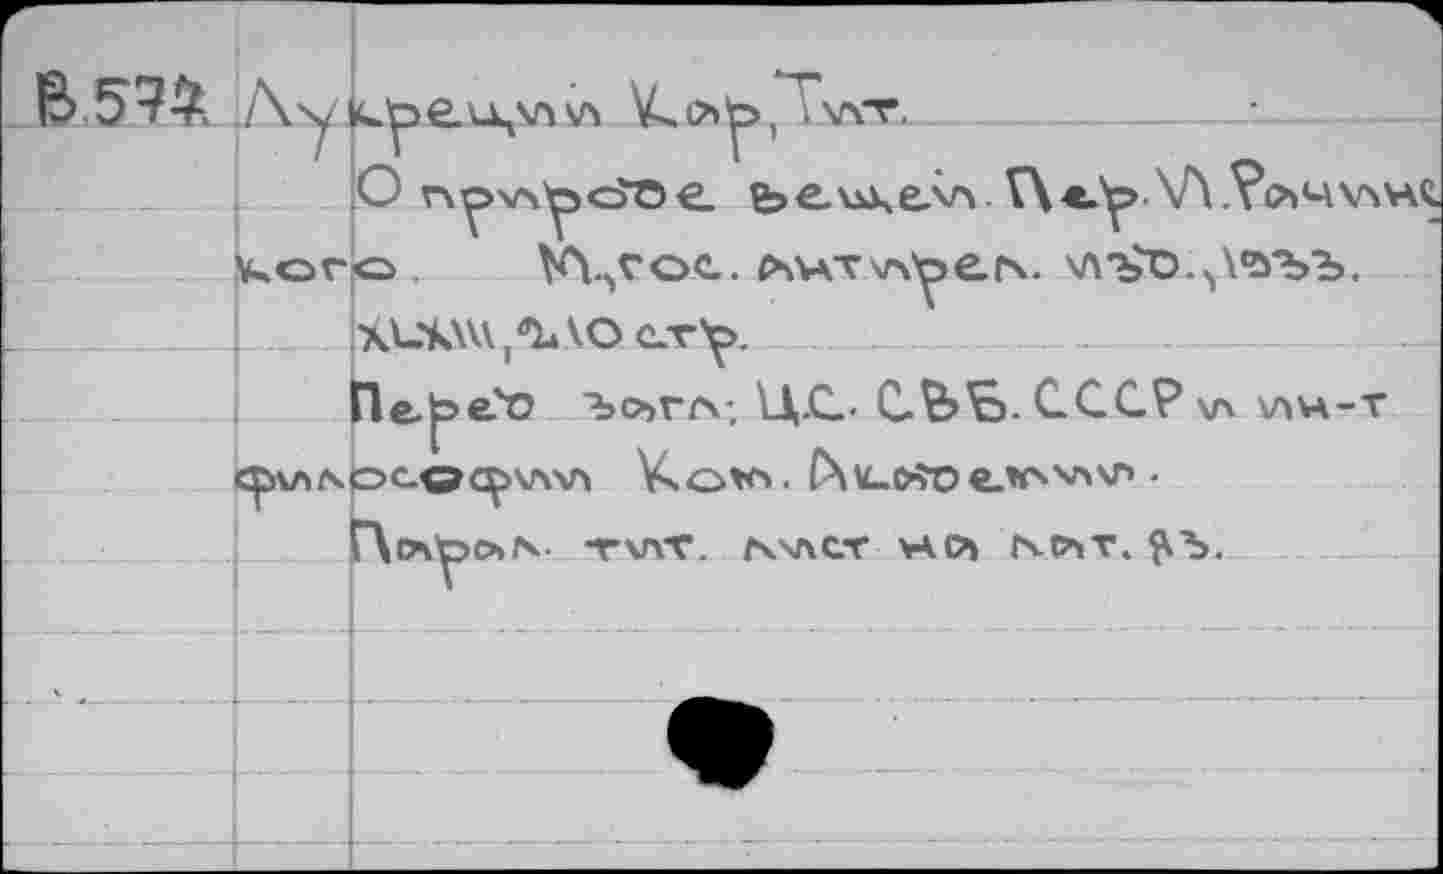 В.574 Лукреций Кар, Тит.
О природе вещей. Пер. И. Рачинс
кого. М., гос. антирел. изд., 1933.
XLЖШ, 210 стр.
Перед загл; Ц.С. СВБ. СССР и ин-т
философии Ком. Академии.
Парал. тит. лист на лат. яз.